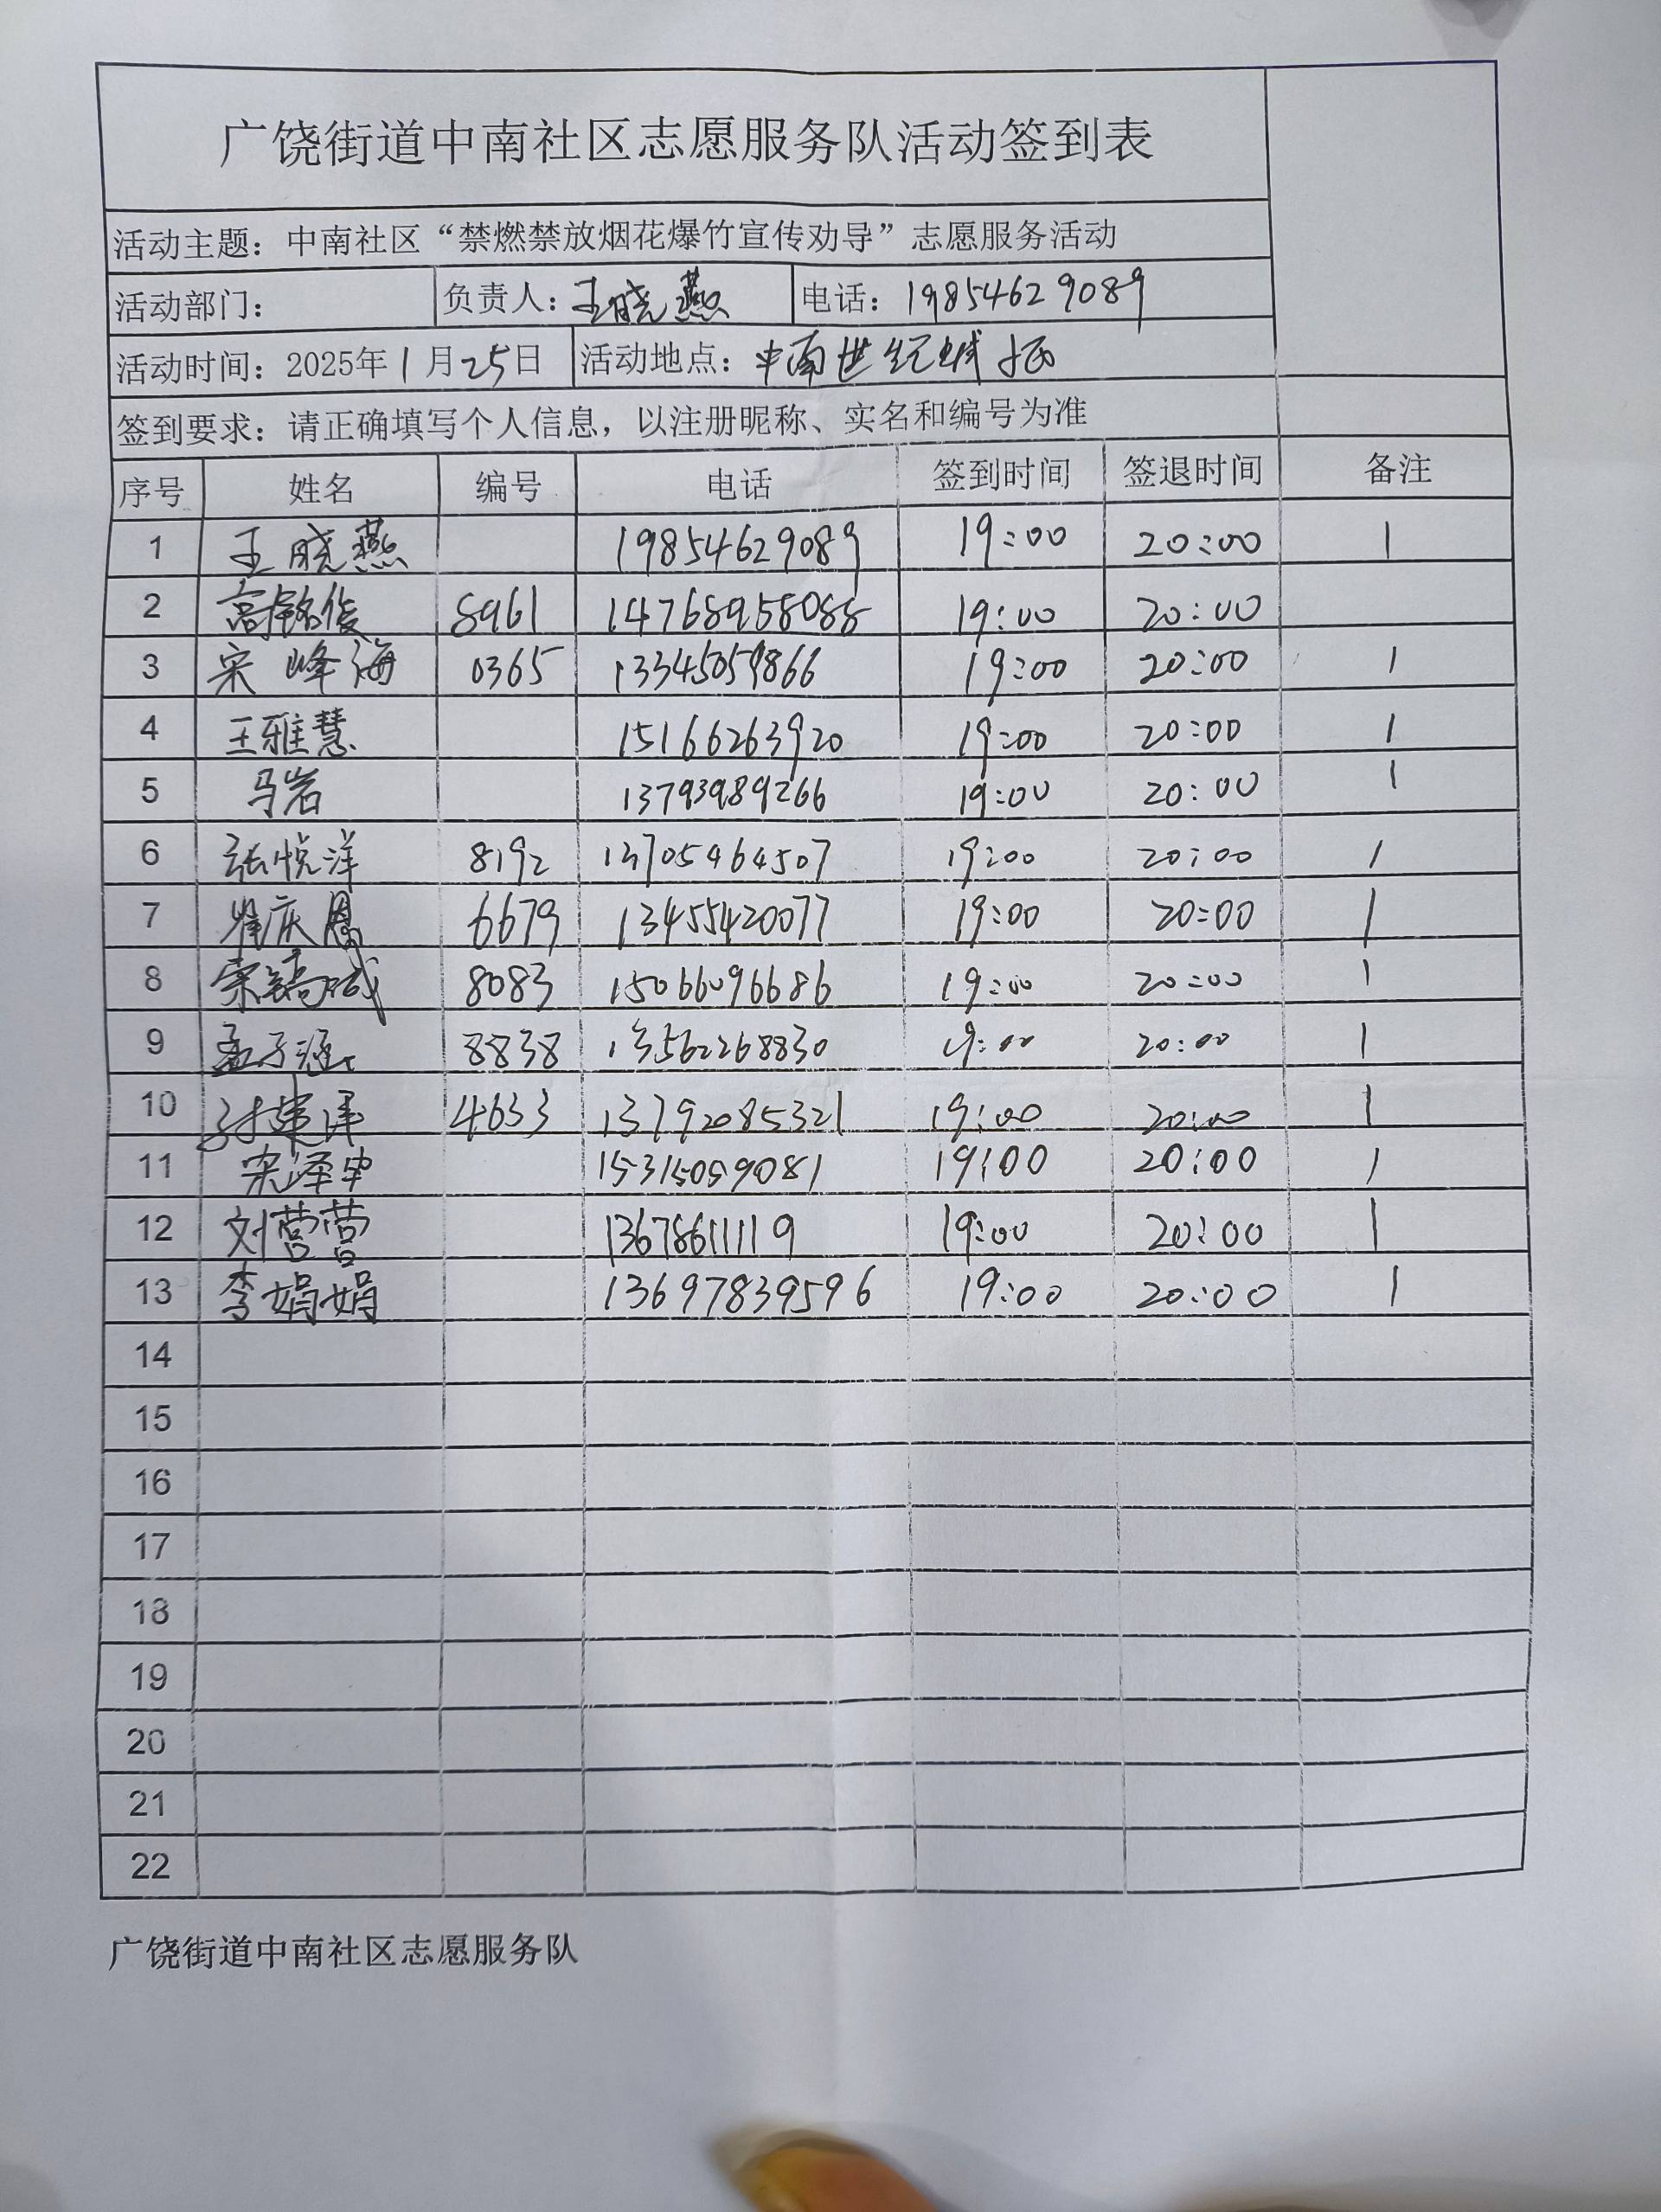 广饶街道中南社区志愿服务队活动签到表
活动主题：中南社区“禁燃禁放烟花爆竹宣传劝导”志愿服务活动
活动部门： 负责人：王晓燕 电话：19854629089
活动时间：2025年1月25日 活动地点：中南世纪城
签到要求：请正确填写个人信息，以注册昵称、实名和编号为准
序号 姓名 编号 电话 签到时间 签退时间 备注
1 王晓燕 19854629089 19:00 20:00 1
2 高铭俊 8961 14768958088 19:00 20:00
3 宋峰海 0365 13345059866 19:00 20:00 1
4 王雅慧 15166263920 19:00 20:00 1
5 马岩 13793989266 19:00 20:00 1
6 张悦洋 8192 13705464507 19:00 20:00 1
7 崔庆恩 6679 13455420077 19:00 20:00 1
8 8083 15066096686 19:00 20:00 1
9 孟子涵 8838 13562268830 19:00 20:00 1
10 4633 13792085321 19:00 20:00 1
11 宋泽中 15315059081 19:00 20:00 1
12 刘营营 13678611119 19:00 20:00 1
13 李娟娟 13697839596 19:00 20:00 1
14
15
16
17
18
19
20
21
22
广饶街道中南社区志愿服务队